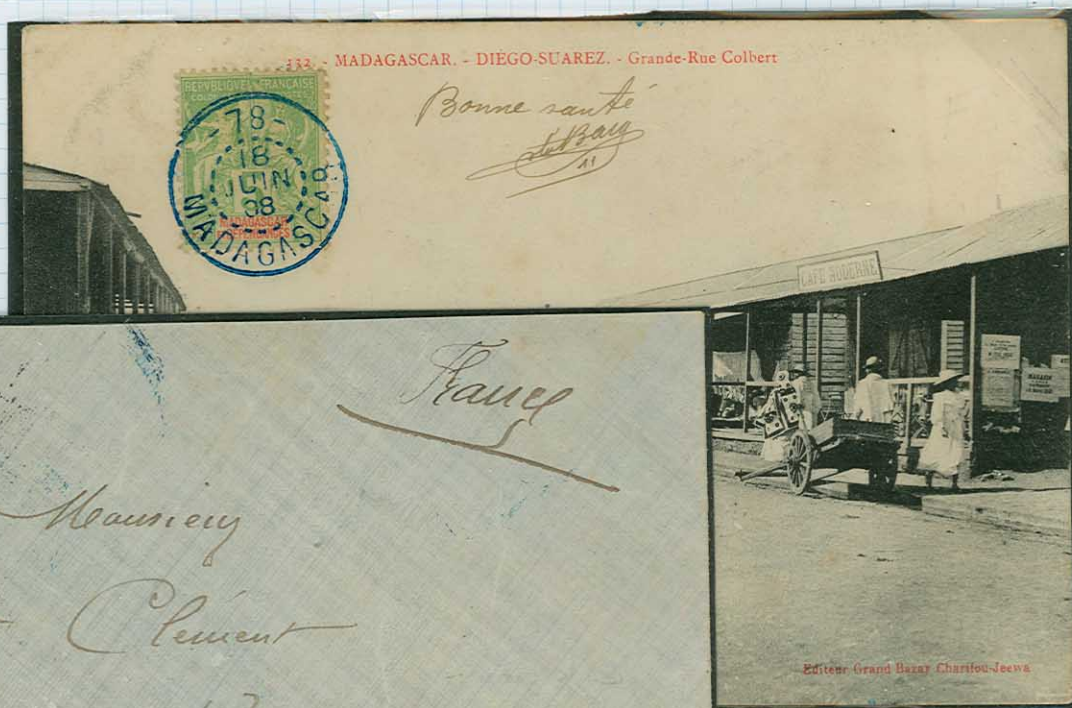 132. - MADAGASCAR. - DIÉGO-SUAREZ. - Grande-Rue Colbert
REPUBLIQUE FRANÇAISE
-78-
18
JUIN
98
MADAGASCAR
MADAGASCAR
ET DÉPENDANCES
Bonne santé
CAFE MODERNE
France
Monsieur
Clément
Editeur Grand Bazar Charifou-Jeewa